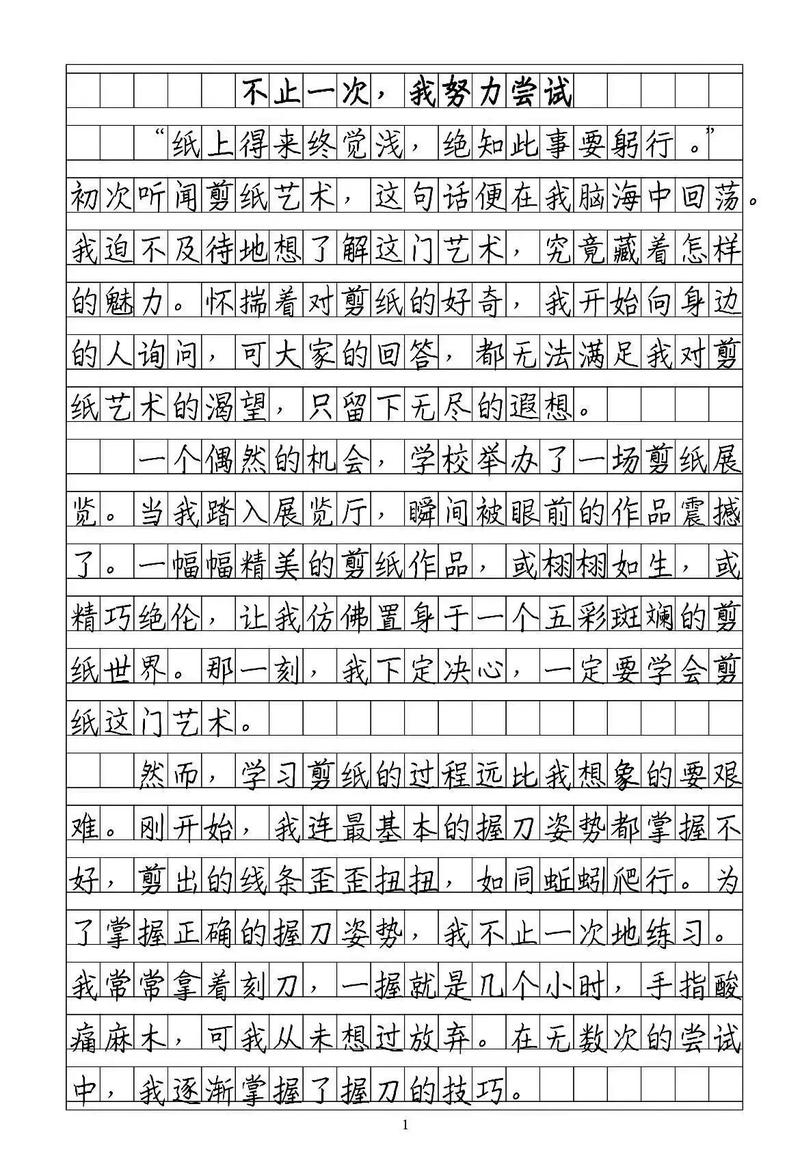 不止一次，我努力尝试
“纸上得来终觉浅，绝知此事要躬行。”
初次听闻剪纸艺术，这句话便在我脑海中回荡。
我迫不及待地想了解这门艺术，究竟藏着怎样
的魅力。怀揣着对剪纸的好奇，我开始向身边
的人询问，可大家的回答，都无法满足我对剪
纸艺术的渴望，只留下无尽的遐想。
一个偶然的机会，学校举办了一场剪纸展
览。当我踏入展览厅，瞬间被眼前的作品震撼
了。一幅幅精美的剪纸作品，或栩栩如生，或
精巧绝伦，让我仿佛置身于一个五彩斑斓的剪
纸世界。那一刻，我下定决心，一定要学会剪
纸这门艺术。
然而，学习剪纸的过程远比我想象的要艰
难。刚开始，我连最基本的握刀姿势都掌握不
好，剪出的线条歪歪扭扭，如同蚯蚓爬行。为
了掌握正确的握刀姿势，我不止一次地练习。
我常常拿着刻刀，一握就是几个小时，手指酸
痛麻木，可我从未想过放弃。在无数次的尝试
中，我逐渐掌握了握刀的技巧。
1